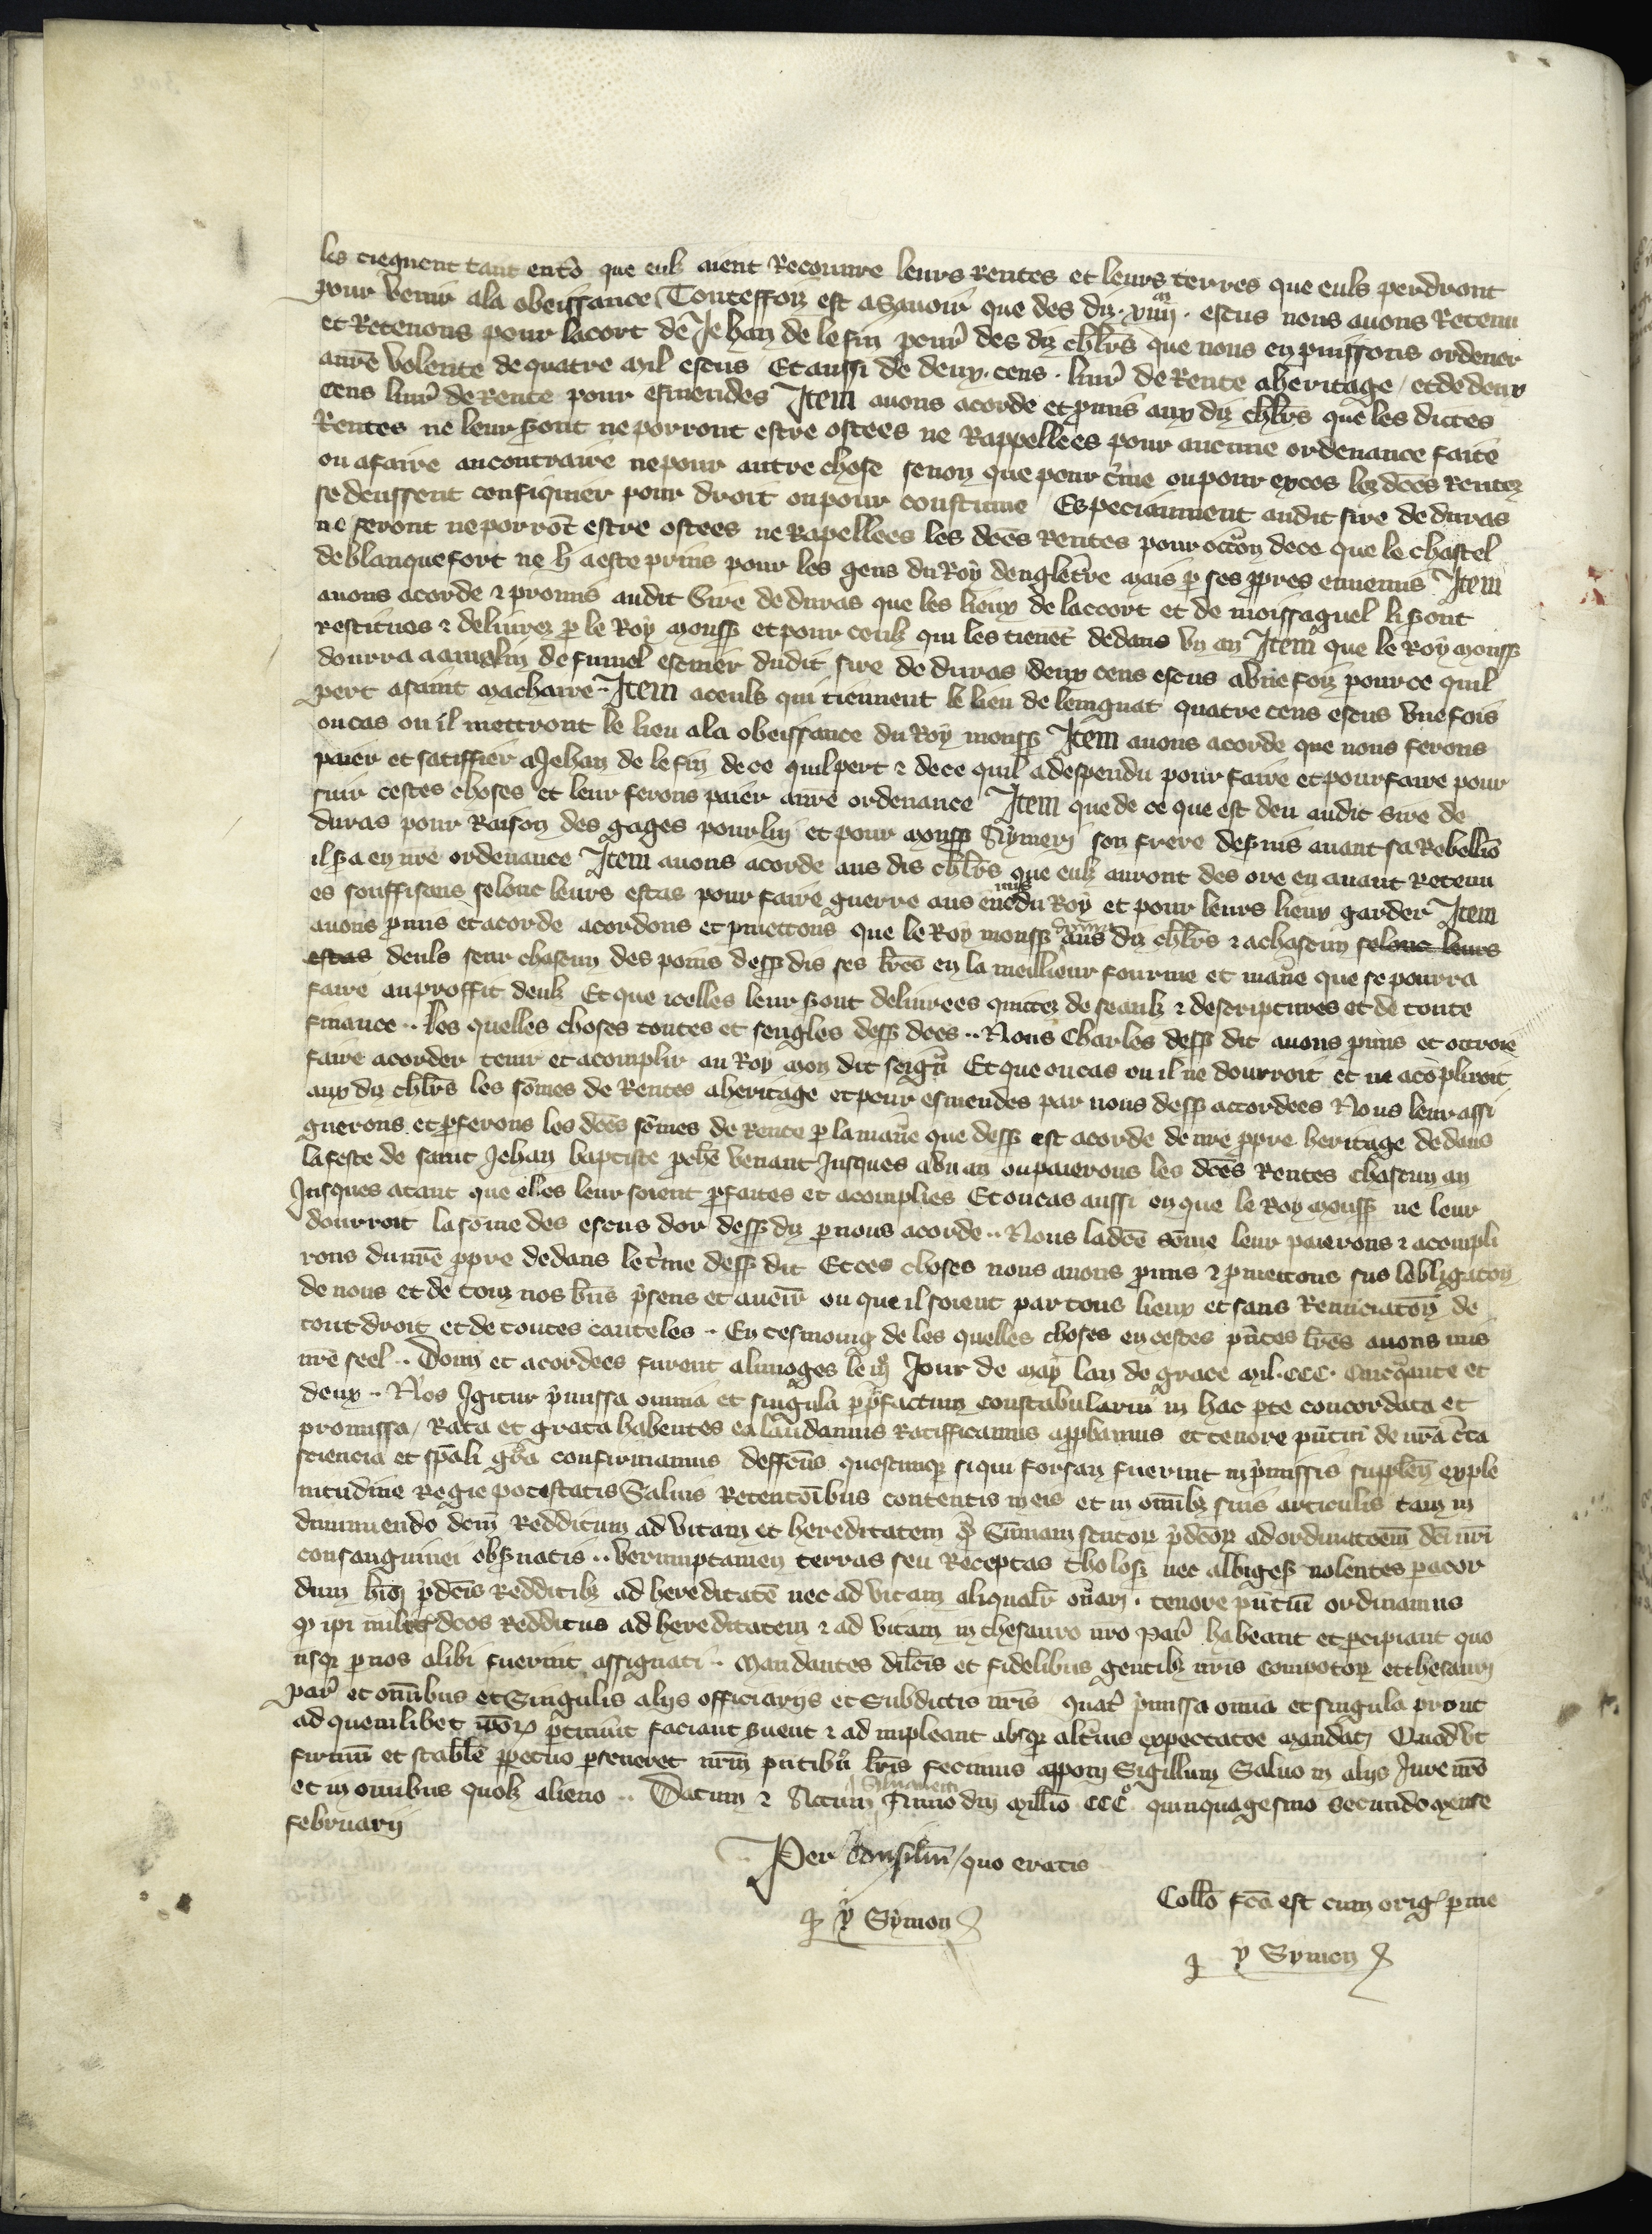 les tieguent tant ento que eulz aient Recouure leurs Rentes et leurs terres que euls perdront
pour venir ala obeissance Touteffoiz est asauoir que des diz .xiiii.m escus nous auons Retenu
et Retenons pour lacort de Jehan de le fin pour des diz chlrs que nous en puissons ordener
a nre volente de quatre mil escus Et aussi de deux .cens. liur de Rente aheritage / et de deux
cens liur de Rente pour esmendes Item auons acorde et pmis aux diz chlrs que les dictes
Rentes ne leur sont ne porront estre ostees ne Rappellees pour aucune ordenance faite
ou afaire au contraire ne pour autre chose se non que pour cme ou pour exces les dces Rentes
se deussent confiquier pour droit ou pour coustume Especiaument audit sire de duras
ne seront ne porrot estre ostees ne Rapellees les dces Rentes pour occon de ce que le chastel
de blanquefort ne li a este prins pour les gens du Roy dengletre mais p ses ppres ennemis Item
auons acorde & promis audit Sire de duras que les lieux de laccort et de moissaguel li sont
restitues & deliurez p le Roy monss et pour ceulz qui les tienet dedans vn an Item que le Roy monss
dourra a amglin de fumel escuier dudit sire de duras deux cens escus a vne foiz pour ce quil
pert a saint macharre Item a ceuls qui tiennent le lieu de lemguat quatre cens escus vne fois
ou cas ou il mettront le lieu ala obeissance du Roy monss Item auons acorde que nous ferons
paier et satiffier a Jehan de le fin de ce quil pert & de ce quil a despendu pour faire et pour faire pour
suir cestes choses et leur ferons paier a nre ordenance Item que de ce que est deu audit Sire de
duras pour Raison des gages pour lui et pour monss Aymeri son frere desseruis auant sa Rebellio
il sa en nre ordenance Item auons acorde aus dis chlrs que eulz auront des ore en auant Retenu
es souffisans selonc leurs estas pour faire guerre aus enemis du Roy et pour leurs lieux garder Item
auons pmis et acorde acordons et pmettons que le Roy monss donrra aus diz chlrs & a chascun selonc leurs
estas deuls seur chascun des poins dess dis ses lres en la meillieur fourme et mane que se pourra
faire au proffit deulz Et que icelles leur sont deliurees quittez de seaulz & descriptures et de toute
finance .. les quelles choses toutes et sengles dess dces .. Nous Charles dess dit auons pmis et ottroie
faire acorder tenir et acomplir au Roy mon dit seign Et que ou cas ou il ne dourroit et ne acopliroit
aux diz chlrs les somes de Rentes aheritage et pour esmendes par nous dess accordees Nous leur assi
guerons et pferons les dces somes de Rente p la mane que dess est acorde de nre ppre heritage dedans
la feste de saint Jehan baptiste pche venant Jusques a vn an ou paierons les dces Rentes chascun an
Jusques atant que elles leur soient pfaites et acomplies Et ou cas aussi en que le Roy monss ne leur
dourroit la some des escus dor dess diz p nous acorde .. Nous la dce some leur paierons & acompli
rons du nre ppre dedans le tme dess dit Et ces choses nous auons pmis & pmettons sus lebligacon
de nous et de touz nos bns psens et auenir ou que il soient par tous lieux et sans Renuciaton de
tout droit et de toutes cauteles .. En tesmoing de les quelles choses en cestes pntes lres auons mis
nre seel .. Donn et acordees furent a limoges le iije Jour de may lan de grace mil.ccc. cinqante et
deux .. Nos Igitur pmissa omnia et singula p pfactum constabulariu in hac pte concordata et
promissa / Rata et grata habentes ea laudamus Ratifficamus appbamus et tenore pntiu de nra cta
sciencia et spali gra confirmamus deffcus quoscumq siqui forsan fuerint in pmissis supplen exple
nitudine Regie potestatis Saluis Retentoibus contentis in eis et in omibz suis articulis tam in
diminuendo dcm Redditum ad vitam et hereditatem q Sumam scutor pdcor ad ordinatoem dci nri
consanguinei obsuatis .. verumptamen terras seu Receptas tholos nec albiges nolentes p acor
dum hmoi pdcis Redditibz ad hereditate nec ad vitam aliqualr onari . tenore pntiu ordinamus
q ipi milites dcos Redditus ad hereditatem & ad vitam in thesauro nro Par habeant et pcipiant quo
usq p nos alibi fuerint assignati .. Mandantes dilcis et fidelibus gentibz nris compotor et thesaur
Par et omibus et Singulis alijs officiarijs et Subdictis nris quat pmissa omia et singula prout
ad quemlibet ipor ptinuit faciant suent & ad impleant absq altius expectatoe mandati Quod vt
firmu et stabile ppetuo pseueret nrm pntibus lris fecimus apponi Sigillum Saluo in alijs Jure nro
et in omibus quolz alieno .. Datum & Actum Anno dni millio CCCo quinquagesimo secundo mense
februarij
Per Consiliu / quo eratis
Y Symon
Collo fca est cum orig p me
Y Symon